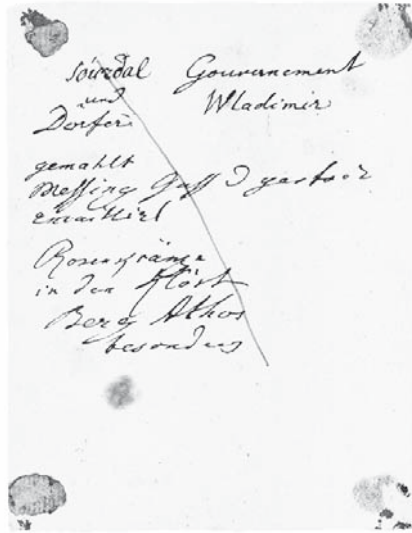 Souzdal Gouvernement
und Wladimir
Dörfer
gemahlt
Messing Guss
emaillirt
Rosenkränze
in den Klöst
Berg Athos
besonders